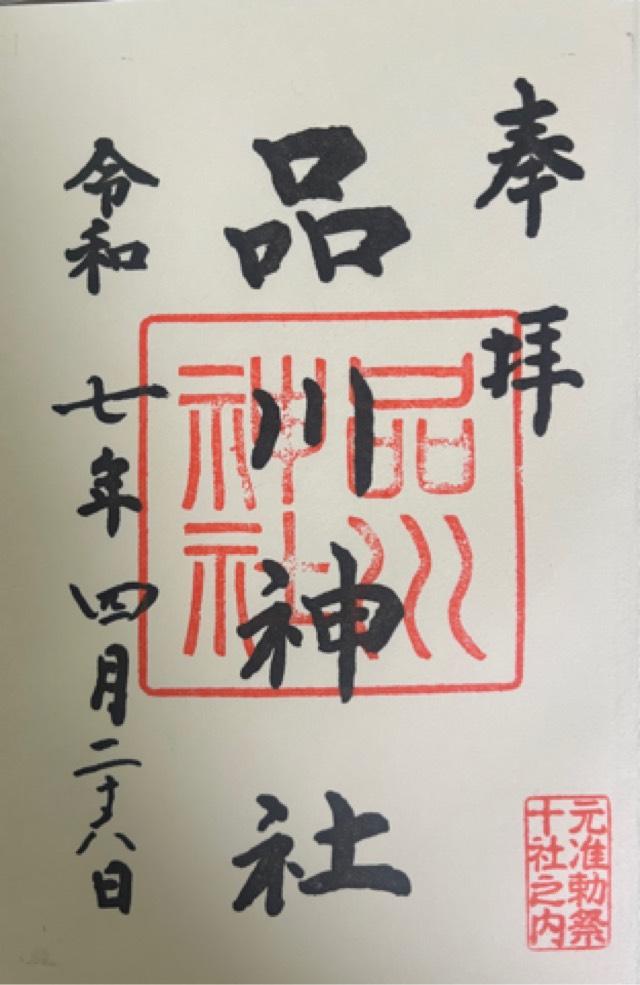 奉拝
品川神社
令和七年四月二十八日
品川
神社
元准勅祭
十社之内